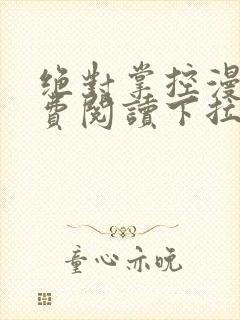 絶對掌控漫
費閱讀下拉
童心亦晚